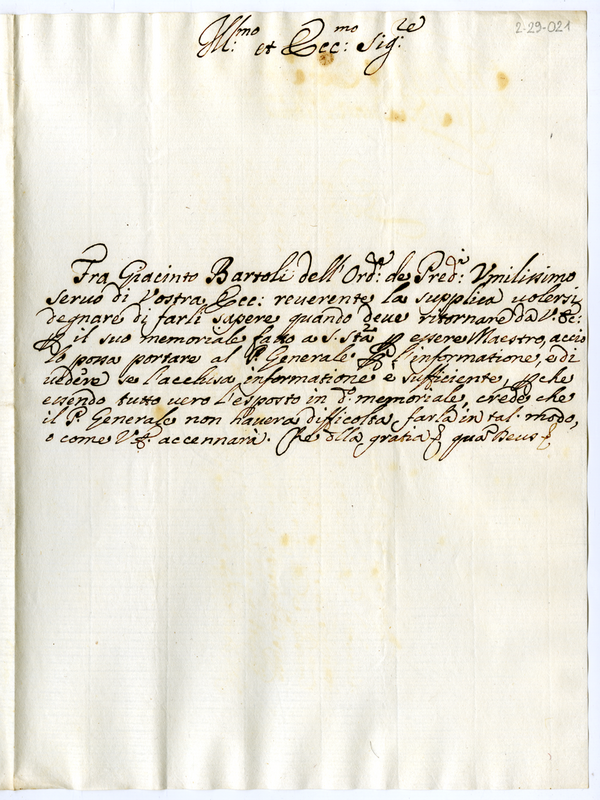 2-29-021
Ill:mo et Ecc:mo Sig:re
Fra Giacinto Bartoli dell'Ord: de Pred:i Vmilissimo
seruo di Vostra Ecc: reuerente la supplica uolersi
degnare di farli sapere quando deue ritornare da V.E:
p il suo memoriale fatto a S. Sta p essere Maestro, accio
lo possa portare al P. Generale p l'informatione, e di
uedere se l'acclusa informatione è sufficiente, p che
essendo tutto uero l'esposto in d: memoriale, crede che
il P. Generale non hauerà difficoltà farla in tal modo,
o come V.E. accennarà. Che della gratia quam Deus